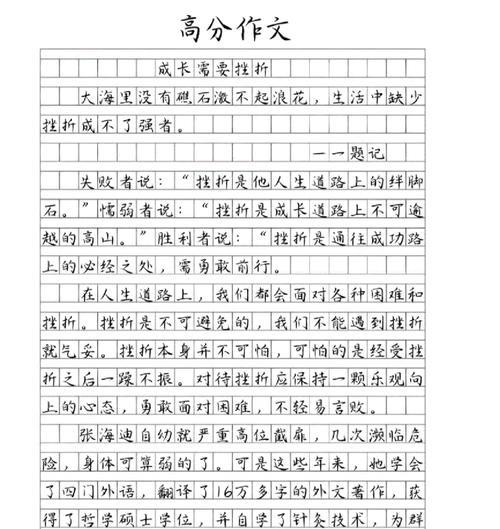 高分作文
成长需要挫折
大海里没有礁石激不起浪花，生活中缺少
挫折成不了强者。
——题记
失败者说：“挫折是他人生道路上的绊脚
石。”懦弱者说：“挫折是成长道路上不可逾
越的高山。”胜利者说：“挫折是通往成功路
上的必经之处，需勇敢前行。
在人生道路上，我们都会面对各种困难和
挫折。挫折是不可避免的，我们不能遇到挫折
就气妥。挫折本身并不可怕，可怕的是经受挫
折之后一蹶不振。对待挫折应保持一颗乐观向
上的心态，勇敢面对困难，不轻易言败。
张海迪自幼就严重高位截瘫，几次濒临危
险，身体可算弱的了。可是这些年来，她学会
了四门外语，翻译了16万多字的外文著作，获
得了哲学硕士学位，并自学了针灸技术，为群